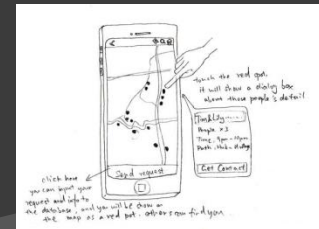 touch the red spot
it will show a dialog box
about those people's detail
People x3
Time. 9pm - 10pm
Get Contact
Send request
click here
you can input your
request and info to
the database, and you will be show on
the map as a red dot. others can find you.